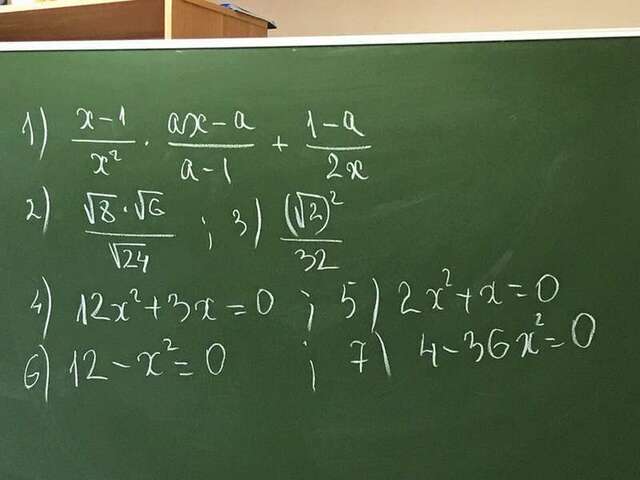 1) x-1/x² · ax-a/a-1 + 1-a/2x
2) √8·√6/√24 ; 3) (√2)²/32
4) 12x²+3x=0 ; 5) 2x²+x=0
6) 12-x²=0 ; 7) 4-36x²=0